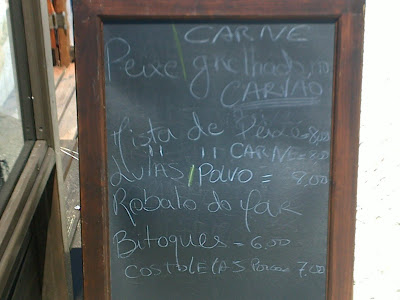 CARNE
Peixe/grelhado, no
CARVÃO
Mista de Peixe = 8,00
" " CARNE = 8,00
LULAS/POLVO = 9,00
Robalo do Mar
Bitoques = 6,00
COSTOLELAS Porco = 7,00